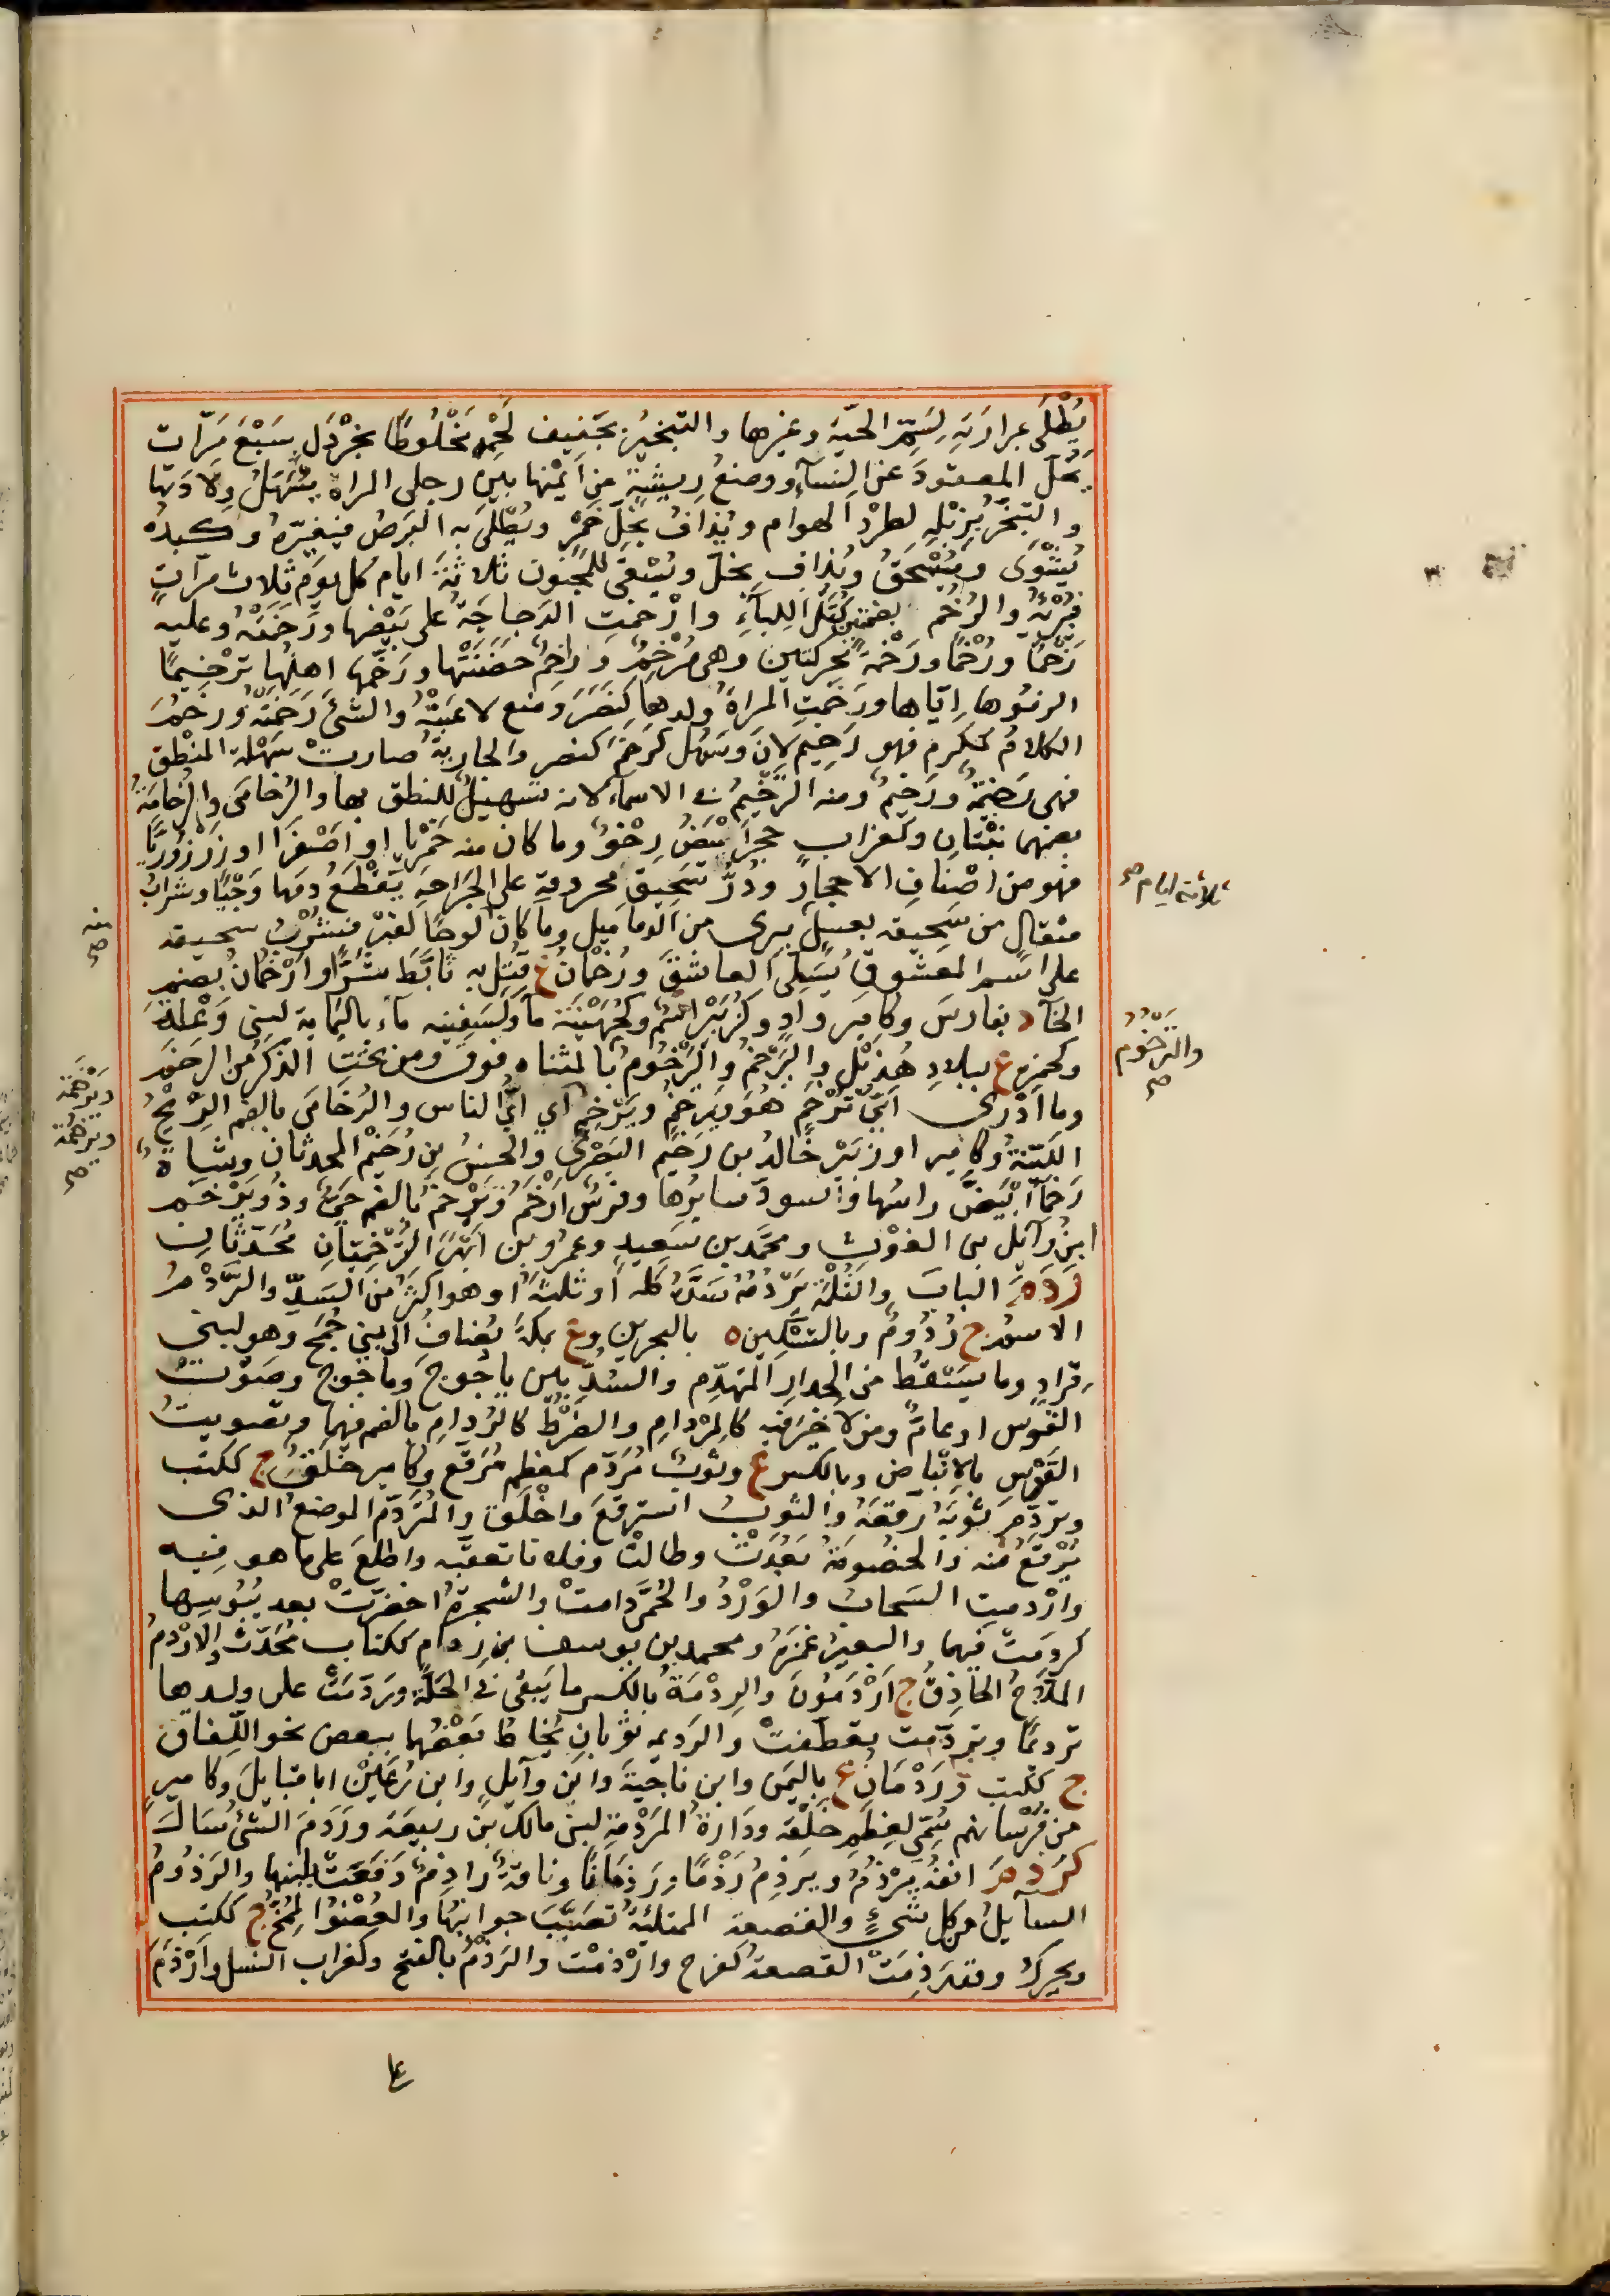 يُطْلَى بمرارته لسم الحية وغيرها والتبخير بجفيف لحمه مخلوطا بخردل سبع مرات
يحل المعقود عن النساء ووضع ريشة من ايمنها بين رجلى المراة يسهل ولادتها
والتبخر بزبله لطرد الهوام ويذاف بخل خمر ويطلى به البرص فيغيره وكبده
تشوى وتسحق وتذاف بخل وتسقى للمجنون ثلاثة ايام كل يوم ثلاث مرات
فتبرئه والرخم بضمتين كتل اللباء وارخمت الدجاجة على بيضها ورخمته وعليه
رخما ورخما ورخمة بحركتين وهى مرخم وراخم حضنتها ورخمها اهلها ترخيما
الزموها اياها ورخمت المراة ولدها كنصر ومنع لاعبته والشئ رحمته ورخم
الكلام ككرم فهو رخيم لان وسهل كرخم كنصر والجارية صارت سهلة المنطق
فهى رخيمة ورخيم ومنه الترخيم فى الاسماء لانه تسهيل للنطق بها والرخامى والرخامة
بضمهما نبتان وكغراب حجر ابيض رخو وما كان منه خمريا او اصفرا او زرزوريا
فهو من اصناف الاحجار وذر سحيق محروقه على الجراحة يقطع دمها وحيا وشراب
مثقال من سحيقه بعسل يبرى من الدماميل وما كان لوحا لقبر فشرب سحيقه
على اسم المعشوق يسلى العاشق ورخمان ع قتل به تابط شرا وارخمان بضم
الخاء د بفارس وكامير واد وكزبير اسم وكجهينة ماء ولسفينه ماء باليمامة لبنى وعلة
وكحمزة ع ببلاد هذيل واليرخم واليرخوم بالمثناه فوق ومن تحت الذكر من الرخم
وما ادرى اى ترخم هو ويرخم وترخم اى اى الناس والرخامى بالضم الريح
اللينة وكامير او زبير خالد بن رخيم البصرى والحسن بن رخيم المحدثان وشاة
رخماء ابيض راسها واسود سايرها وفرس ارخم وترخم بالضم حى وذو ترخم
ابن وايل بن الغوث ومحمد بن سعيد وعمرو بن ابهر الترخميتان محدثان
ردم الباب والثلمة يردمه سده كله او ثلثه او هو اكثر من السد والردم
الاسم ج ردوم وبالتسكين ه بالبحرين وع بمكة يضاف الى بنى جمح وهو لبنى
قراد وما يسقط من الجدار المتهدم والسد بين ياجوج وماجوج وصوت
القوس او عام ومن لا خير فيه كالمردام والضرط كالردام بالضم فيهما وتصويت
القوس بالانباض وبالكسر ع وثوب مردم كمعظم مرقع وكامير خلق ج ككتب
وتردم ثوبه رقعه والثوب استرقع واخلق والمتردم الموضع الذى
يرقع منه والخصومة بعدت وطالت وفلانا تعقبه واطلع على ما هو فيه
واردمت السحاب والورد والحمى دامت والشجرة اخضرت بعد يبوسها
كردمت فيهما والبعير غمزه ومحمد بن يوسف بن ردام ككتاب محدث والاردم
الملاح الحاذق ج اردمون والردمة بالكسر ما يبقى فى الجلة وردمت على ولدها
ترديما وتردمت تعطفت والرديم ثوبان يخاط بعضهما ببعض نحو اللفاق
ج ككتب وردمان ع باليمن وابن ناجية وابن وايل وابن رعين ابا قبايل وكامير
من فرسانهم سمى لعظم خلقه ودارة المردمة لبنى مالك بن ربيعة وردم الشئ سال
كرذم انفه يرذم ويرذم رذما ورذمانا وناقة راذم دفعت بلبنها والرذوم
السايل من كل شئ والقصعة الممتلئة تصبب جوانبها والعضو الممخ ج ككتب
ويحرك وقد رذمت القصعة كفرح وارذمت والرذم بالفتح وكغراب الفسل وارذم
ثلاثة ايام صح
والترخوم
صح
منه
صح
وترخمة
ويرخمة
صح